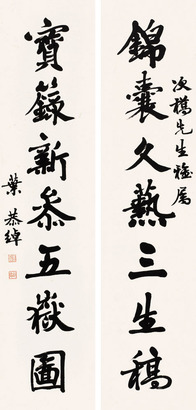 錦囊久爇三生稿
次楊先生雅屬
寶籙新叅五嶽圖
葉恭綽